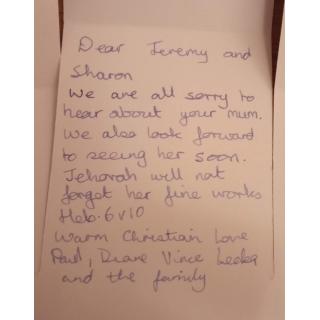 Dear Jeremy and
Sharon
We are all sorry to
hear about your mum.
We also look forward
to seeing her soon.
Jehovah will not
forget her fine works
Heb. 6 v 10
Warm Christian Love
Paul, Diane Vince
and the family